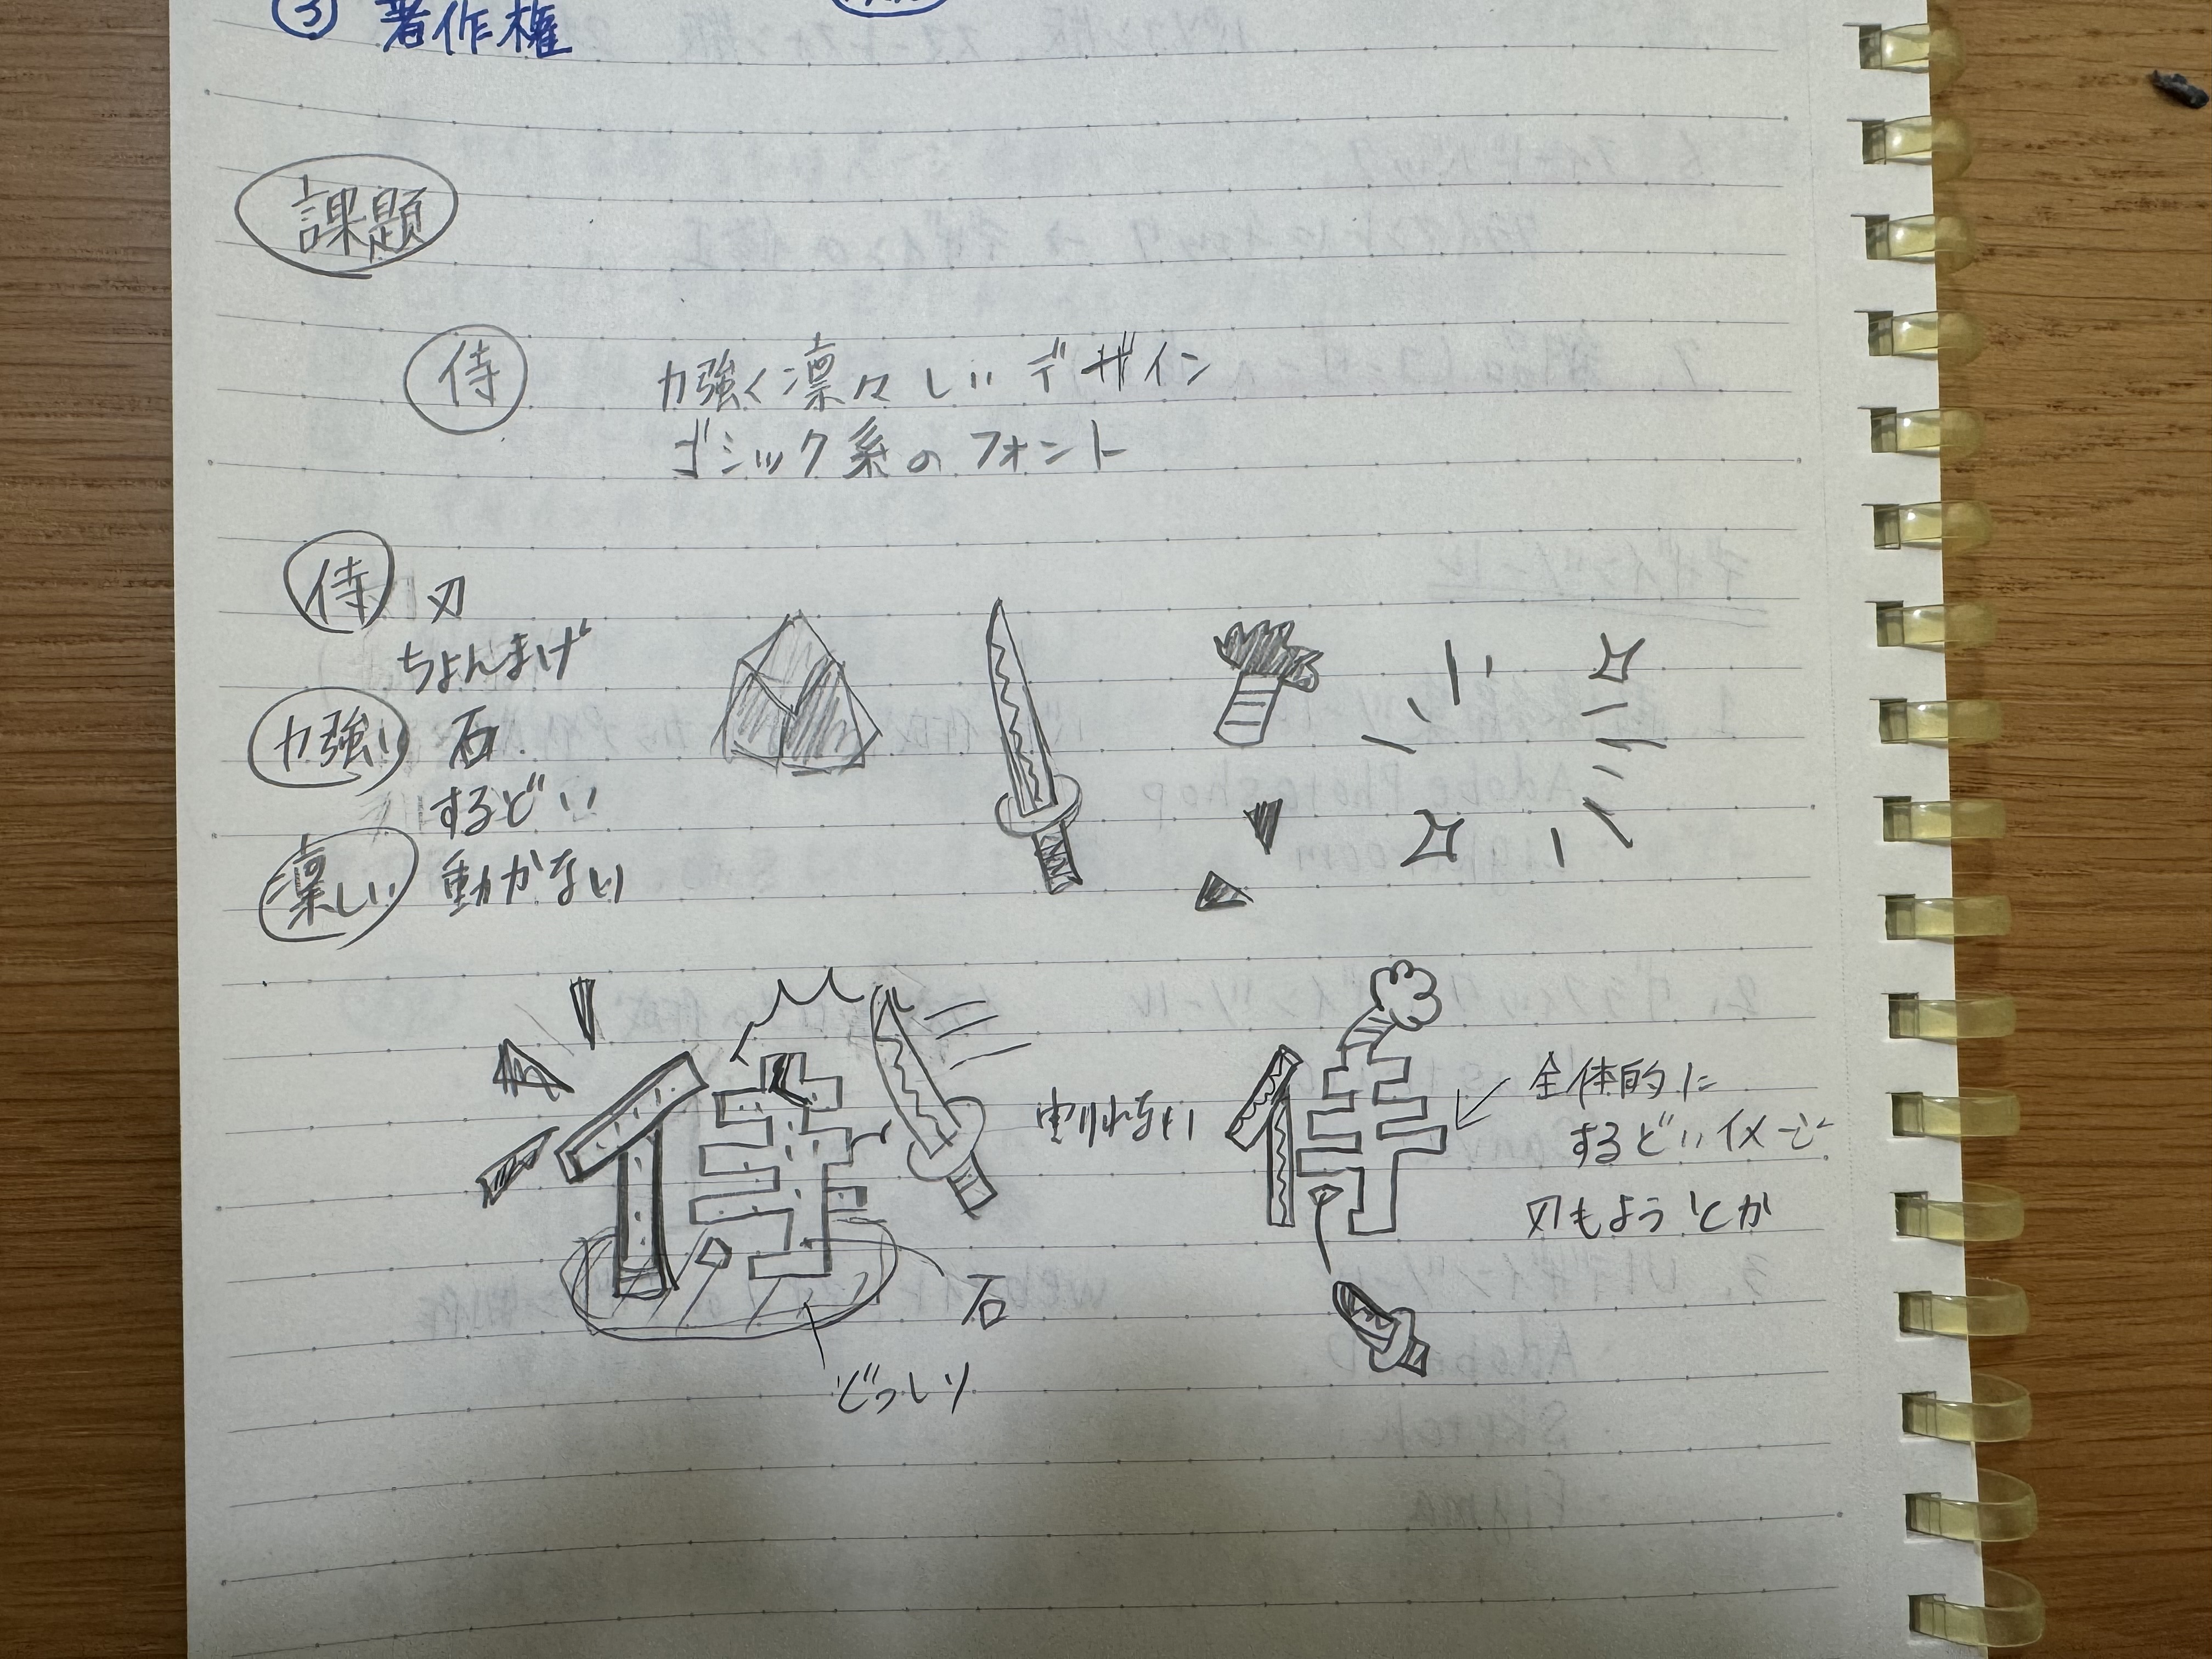 ③ 著作権
課題
侍 力強く凛々しいデザイン
ゴシック系のフォント
侍 刃
ちょんまげ
力強い 石
するどい
凛しい 動かない
侍
割れない
侍
全体的に
するどいイメージ
刃もようとか
石
どっしり